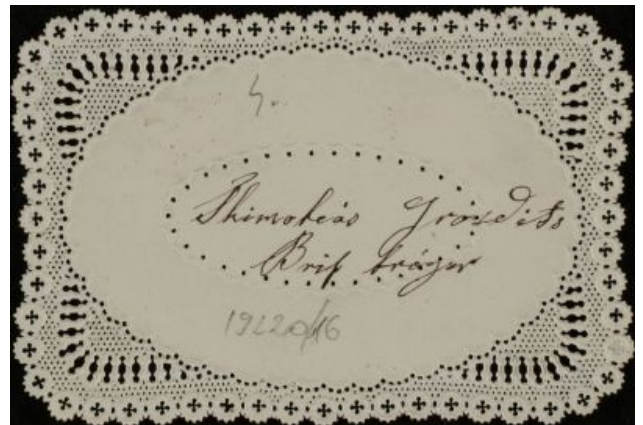 4.
Thimotios Grosdits
Brif träger
19220/16